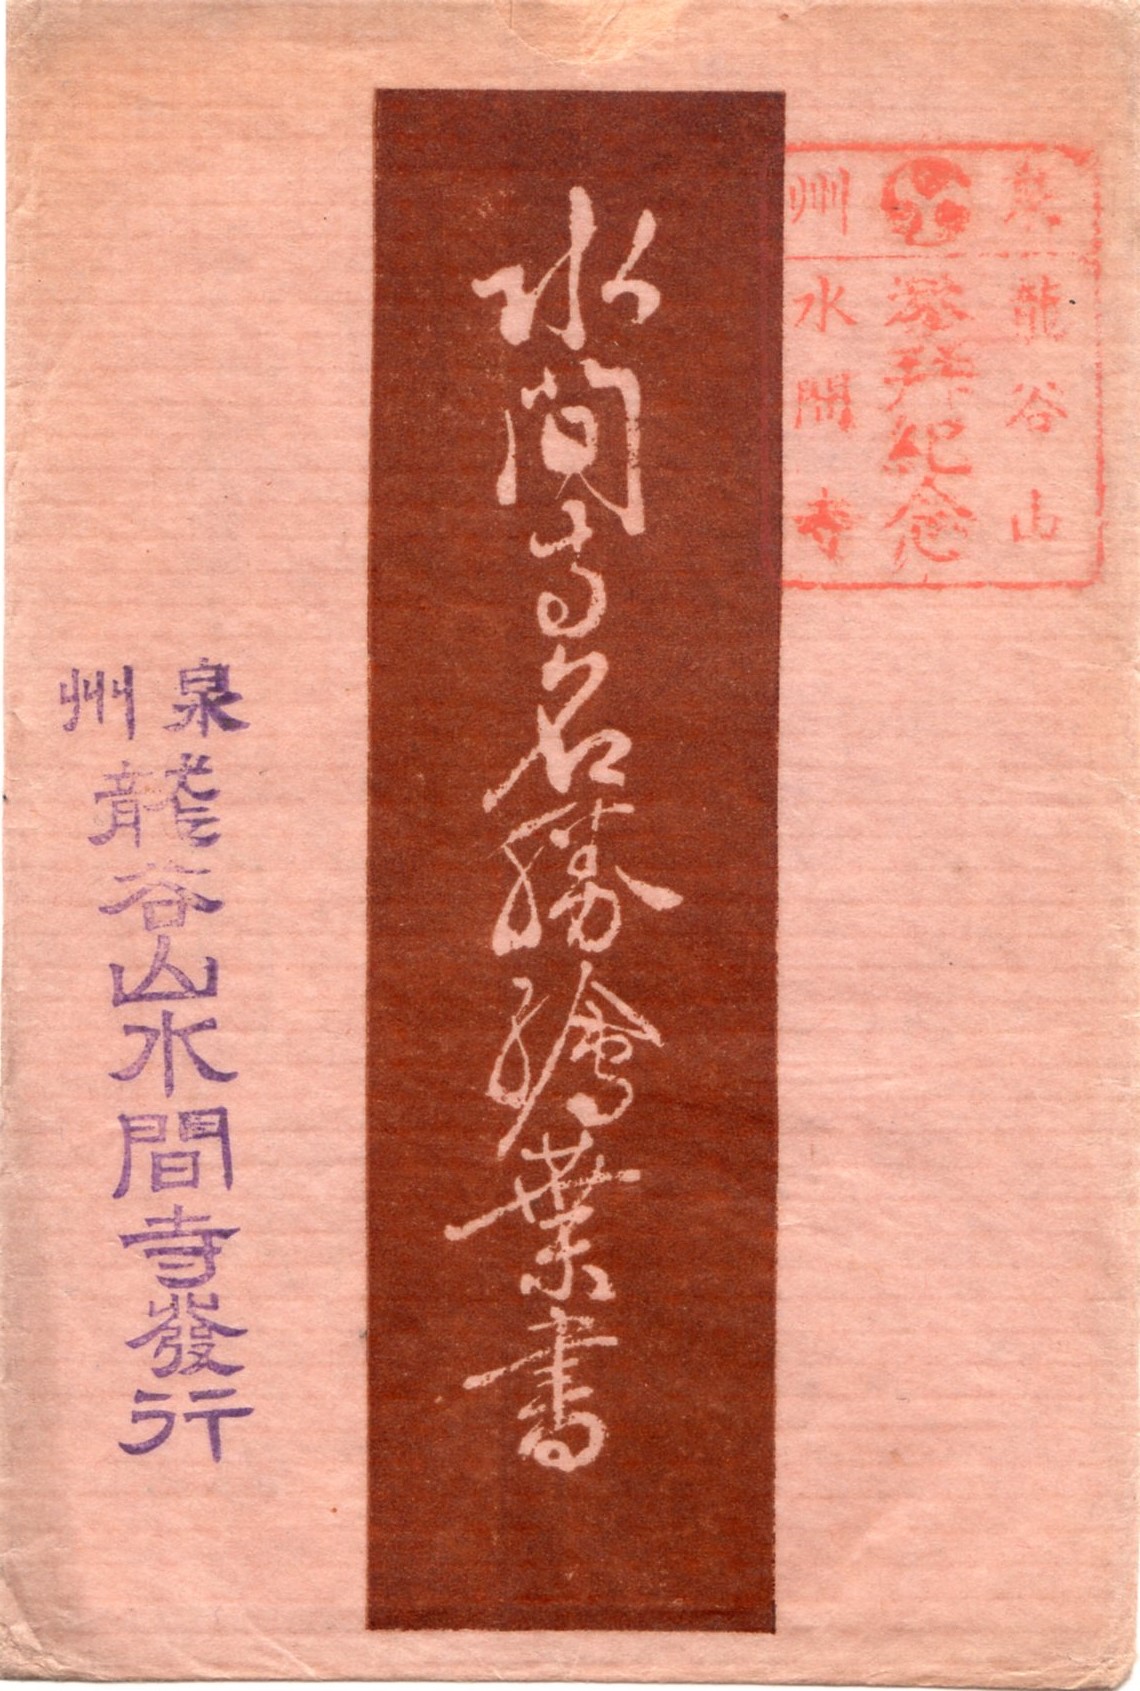 泉州
龍谷山
參拜紀念
水間寺
水間寺名勝繪葉書
泉州
龍谷山水間寺發行